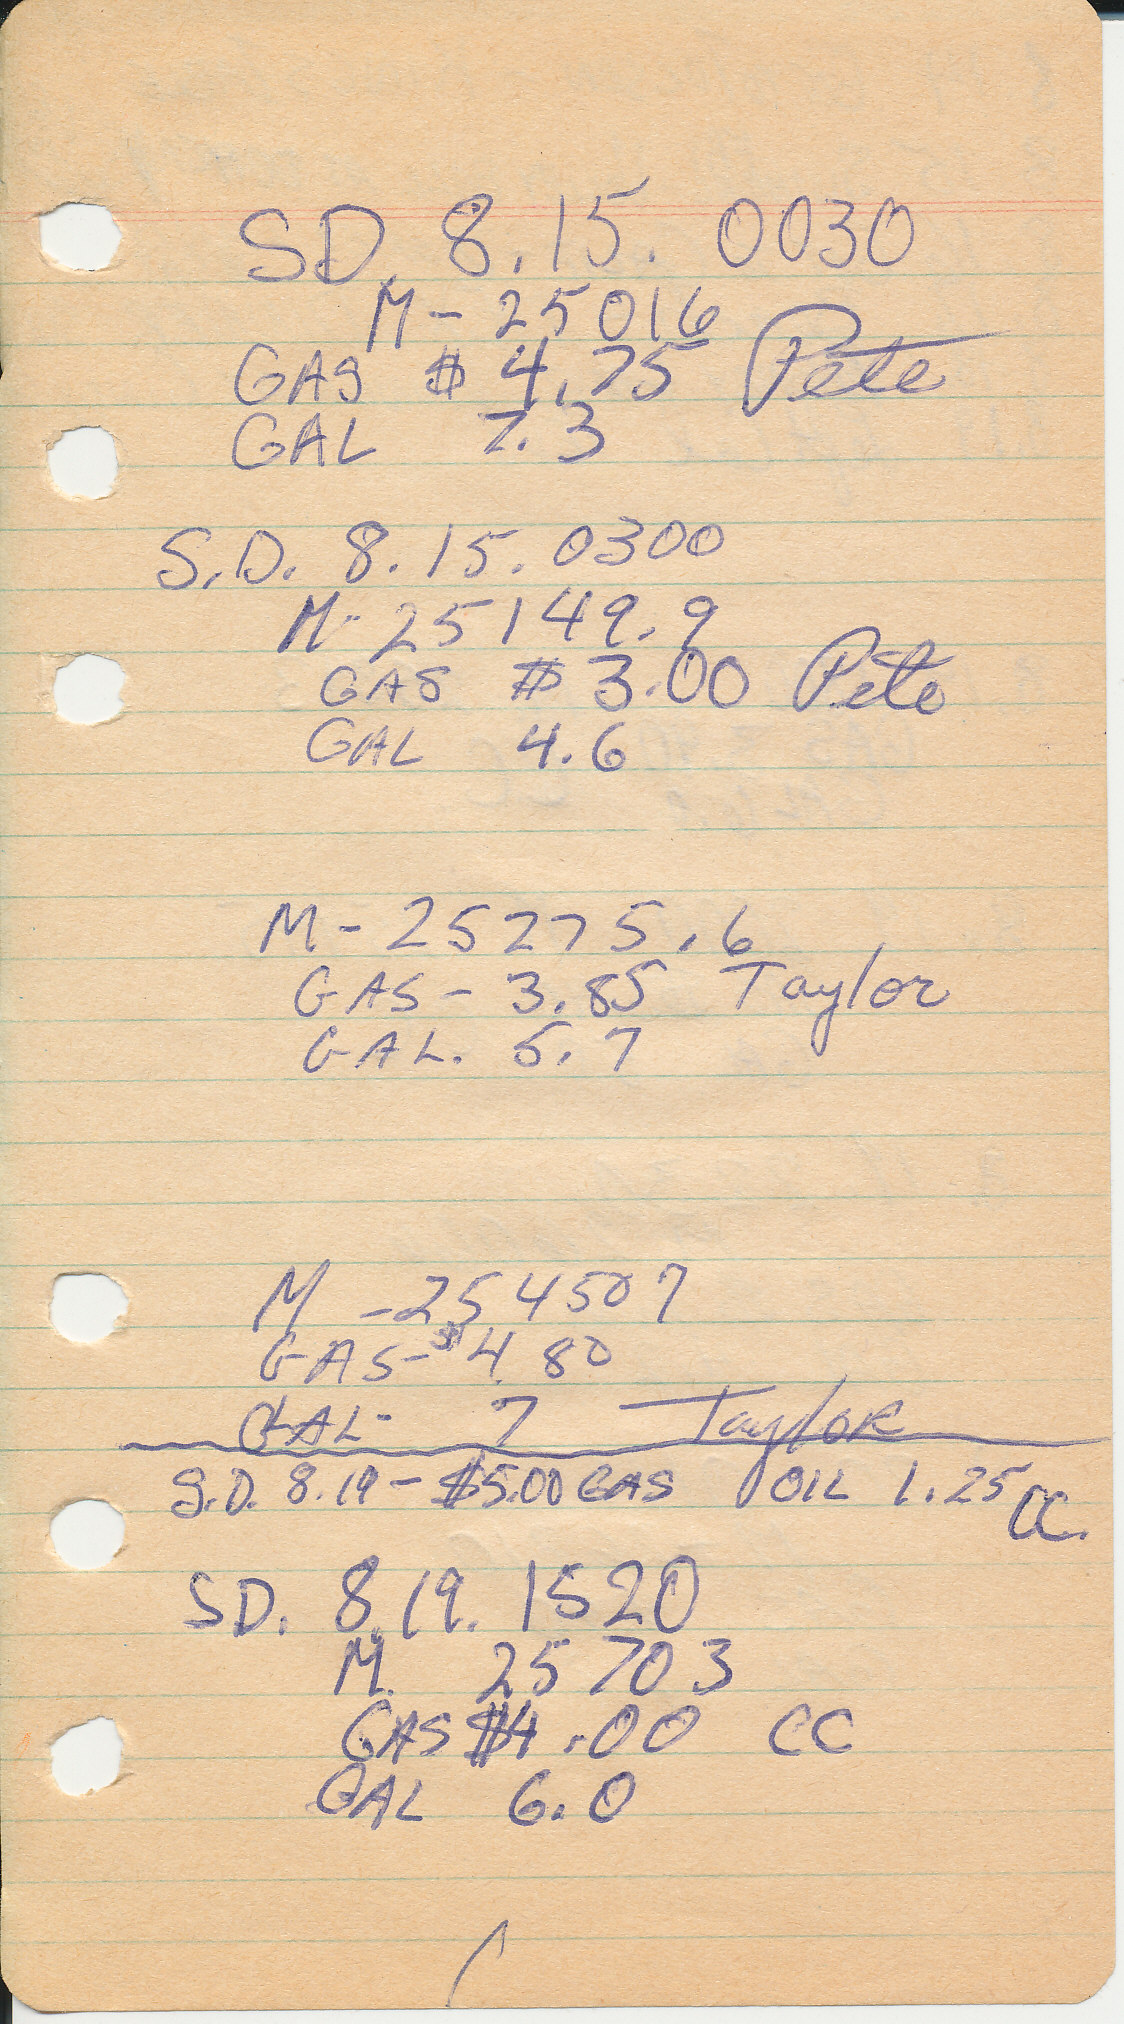 SD. 8.15. 0030
M - 25016
GAS $ 4.75 Pete
GAL 7.3
S.D. 8.15.0300
M- 25149.9
GAS $ 3.00 Pete
GAL 4.6
M - 25275.6
GAS - 3.85 Taylor
GAL. 5.7
M - 254507
GAS - $4.80
GAL - 7 Taylor
S.D. 8.19 - $5.00 GAS OIL 1.25 CC.
SD. 8.19. 1520
M. 25703
GAS $4.00 CC
GAL 6.0